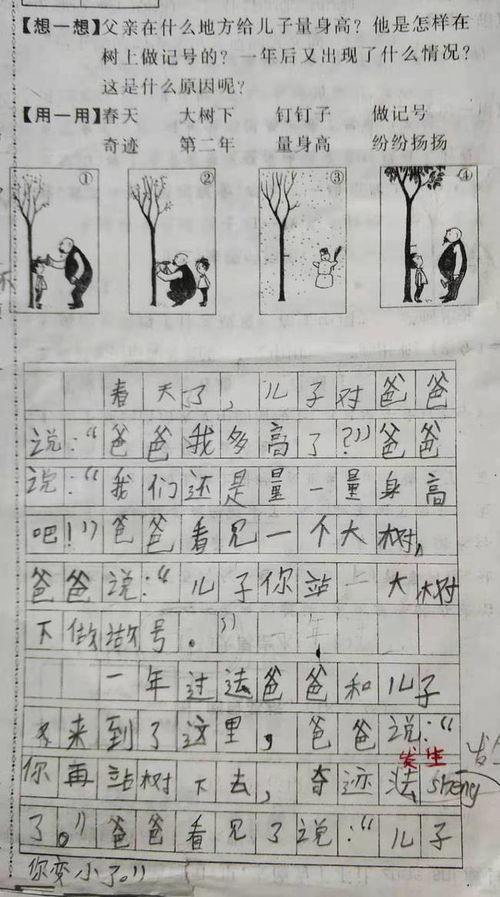 【想一想】父亲在什么地方给儿子量身高？他是怎样在
树上做记号的？一年后又出现了什么情况？
这是什么原因呢？
【用一用】春天 大树下 钉钉子 做记号
奇迹 第二年 量身高 纷纷扬扬
① ② ③ ④
春天了，儿子对爸爸
说：“爸爸我多高了？”爸爸
说：“我们还是量一量身高
吧！”爸爸看见一个大树，
爸爸说：“儿子你站一大树
下做做号。”
一年过法爸爸和儿子
来到了这里，爸爸说：“
发生
你再站树下去，奇迹法sheng
了。”爸爸看见了说：“儿子
你变小了。”